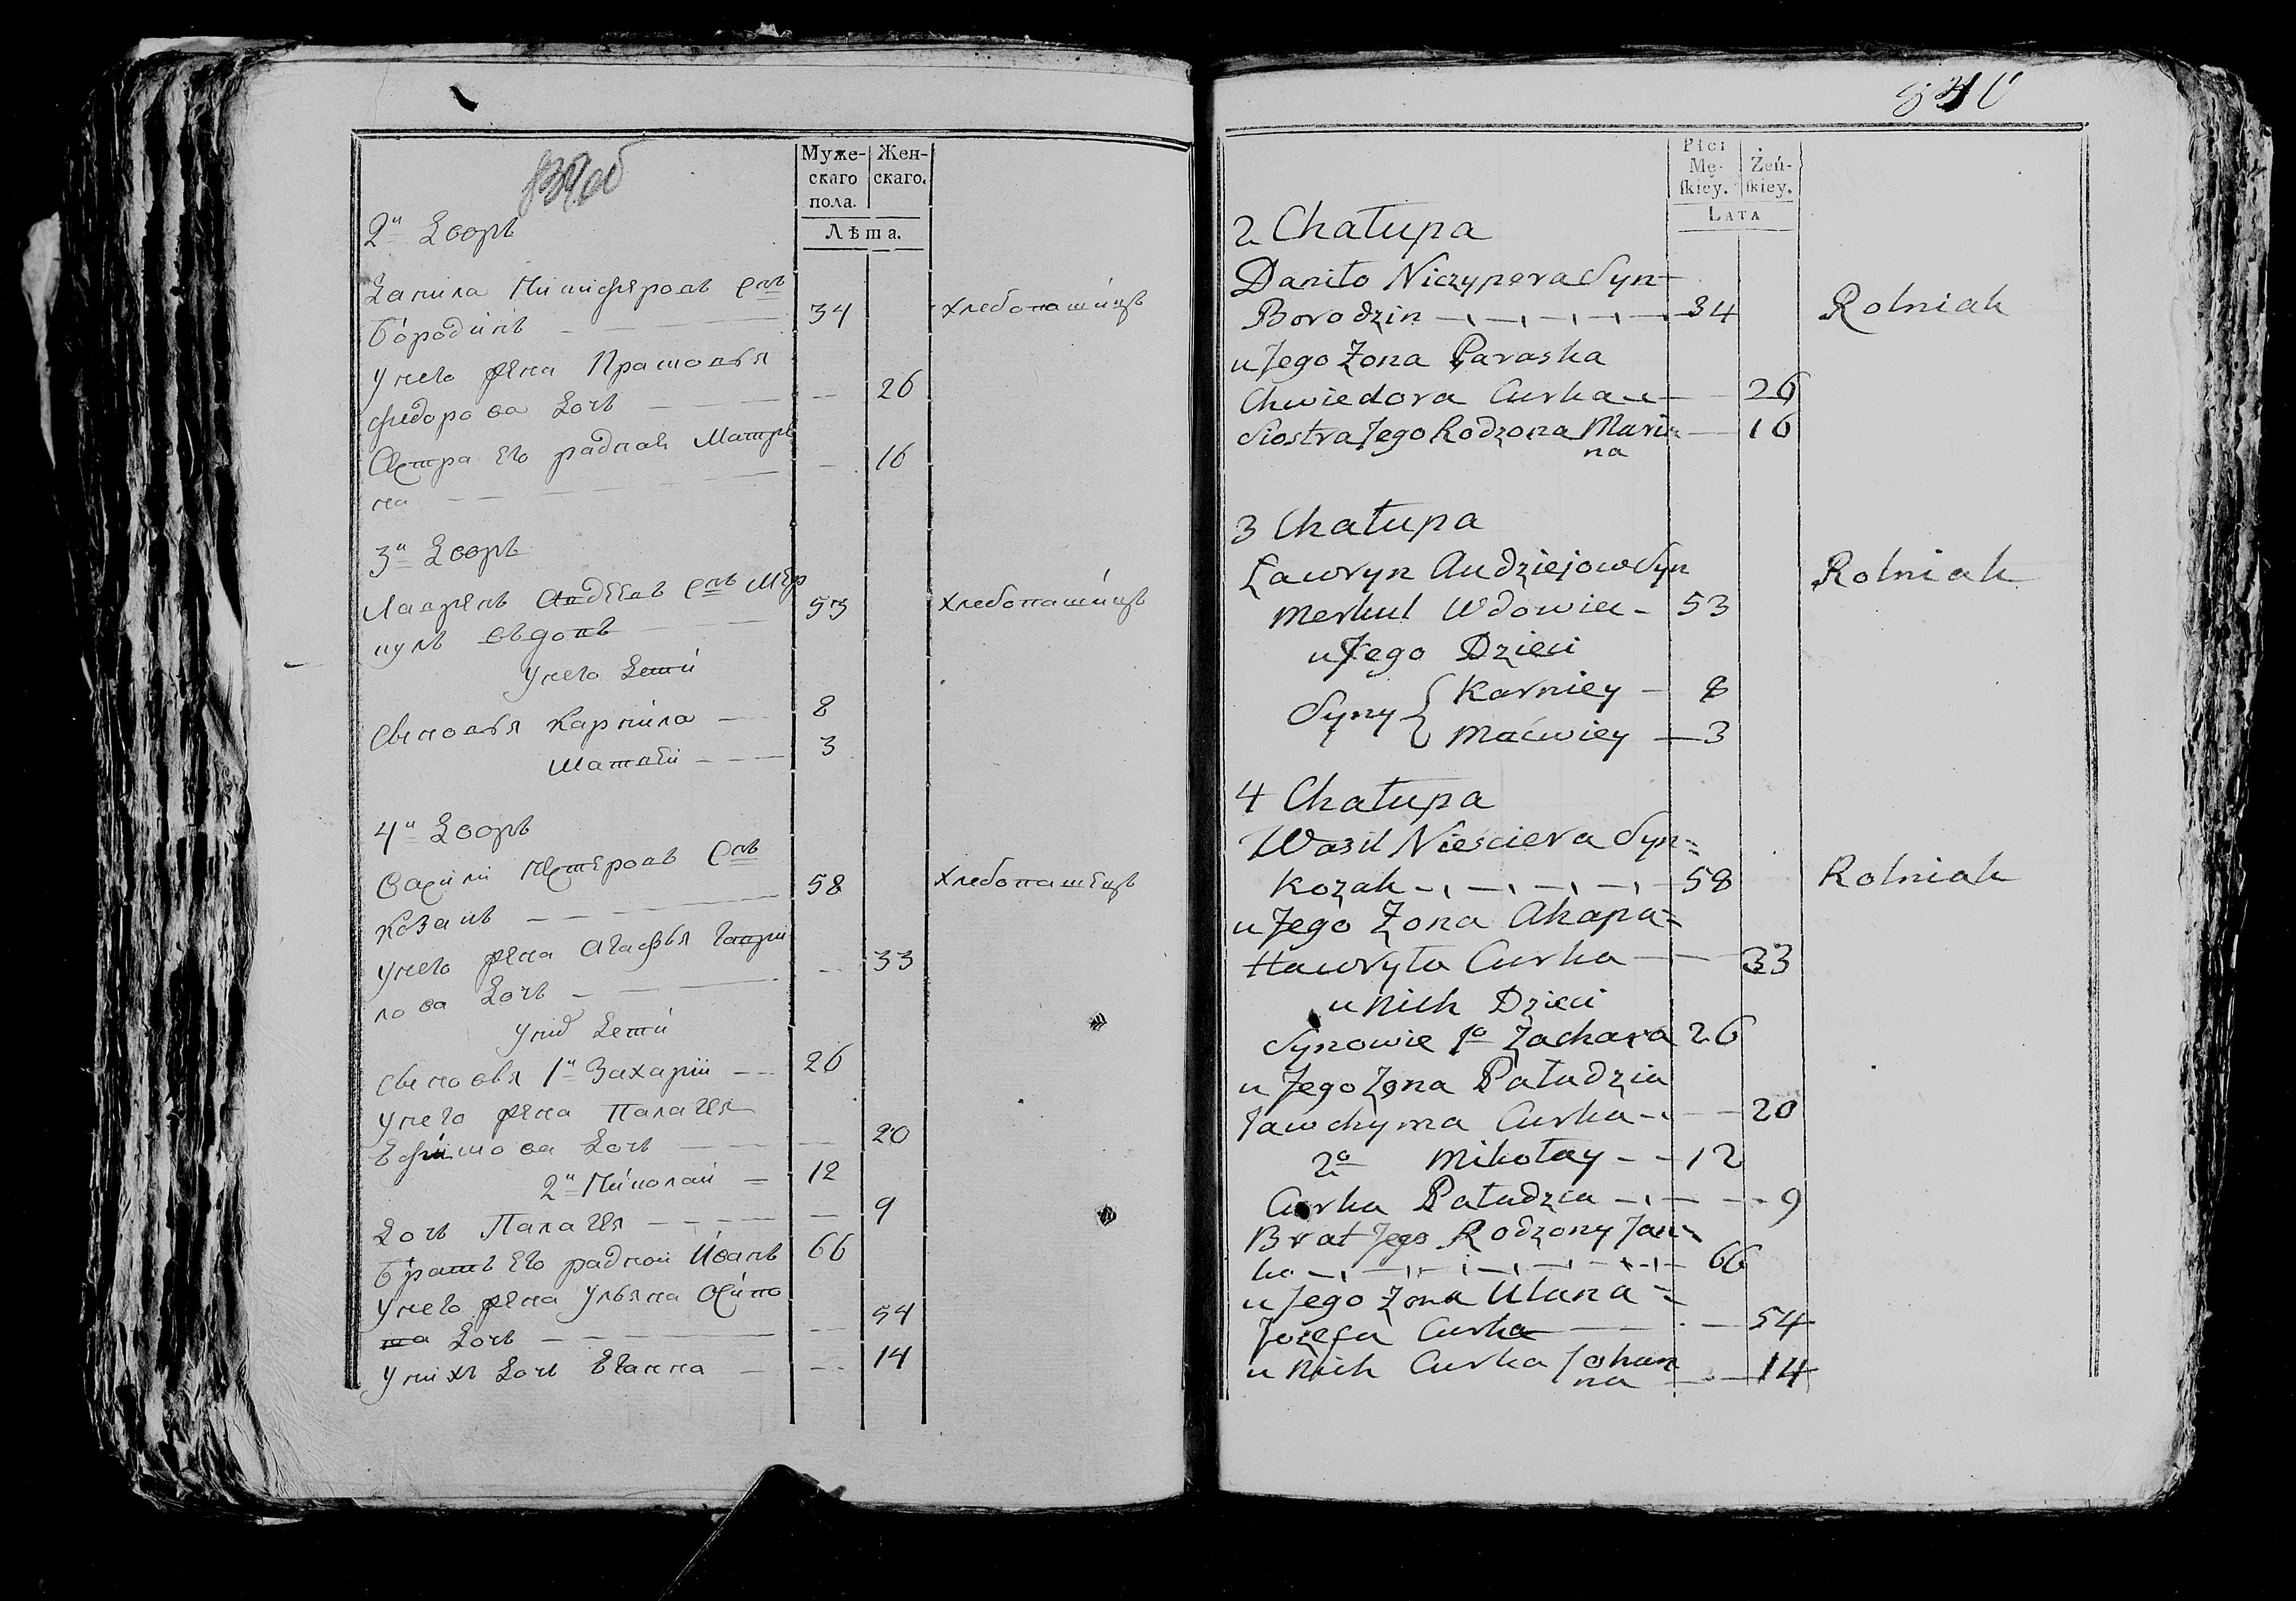 Муже-
скаго
пола.
Жен-
скаго.
Лѣта.
2й Дворъ
Данила Ничифяровъ снъ
Бородичъ 34 хлебопашицъ
У него жена Прасковья
Федорова дочь 26
Сестра его радная Матры
на 16
3й Дворъ
Лаврянъ Авдеевъ снъ Мер
кулъ вдовъ 53 хлебопашицъ
У него дети
Сыновья Карнила 8
Матвей 3
4й Дворъ
Василий Нестеровъ снъ
Козакъ 58 хлебопашецъ
У него жена Агафья Гаври
лова дочь 33
У них дети
Сыновья 1й Захарий 26
У него жена Палагея
Ефимова дочь 20
2й Николай 12
Дочь Палагея 9
Братъ его радной Иванъ 66
У него жена Ульяна Осипо
ва дочь 54
У нихъ дочь Еганна 14
840
Płci
Mę-
ſkiey.
Żeń-
ſkiey.
LATA
2 Chałupa
Daniło Niczypera Syn
Borodzin 34 Rolniak
u Jego Żona Paraska
Chwiedora Curka 26
Siostra Jego Rodzona Mari
na 16
3 Chałupa
Ławryn Audziejow Syn Rolniak
Merkul Wdowiec 53
u Jego Dzieci
Syny { Karniey 8
Maćwiey 3
4 Chałupa
Wasil Nieściera Syn
Kozak 58 Rolniak
u Jego Żona Ahapa
Hawryła Curka 33
u Nich Dzieci
Synowie 1o Zachara 26
u Jego Żona Paładzia
Jawchyma Curka 20
2o Mikołay 12
Curka Paładzia 9
Brat Jego Rodzony Jan
ko 66
u Jego Żona Ulana
Jozefa Curka 54
u Nich Curka Johan
na 14